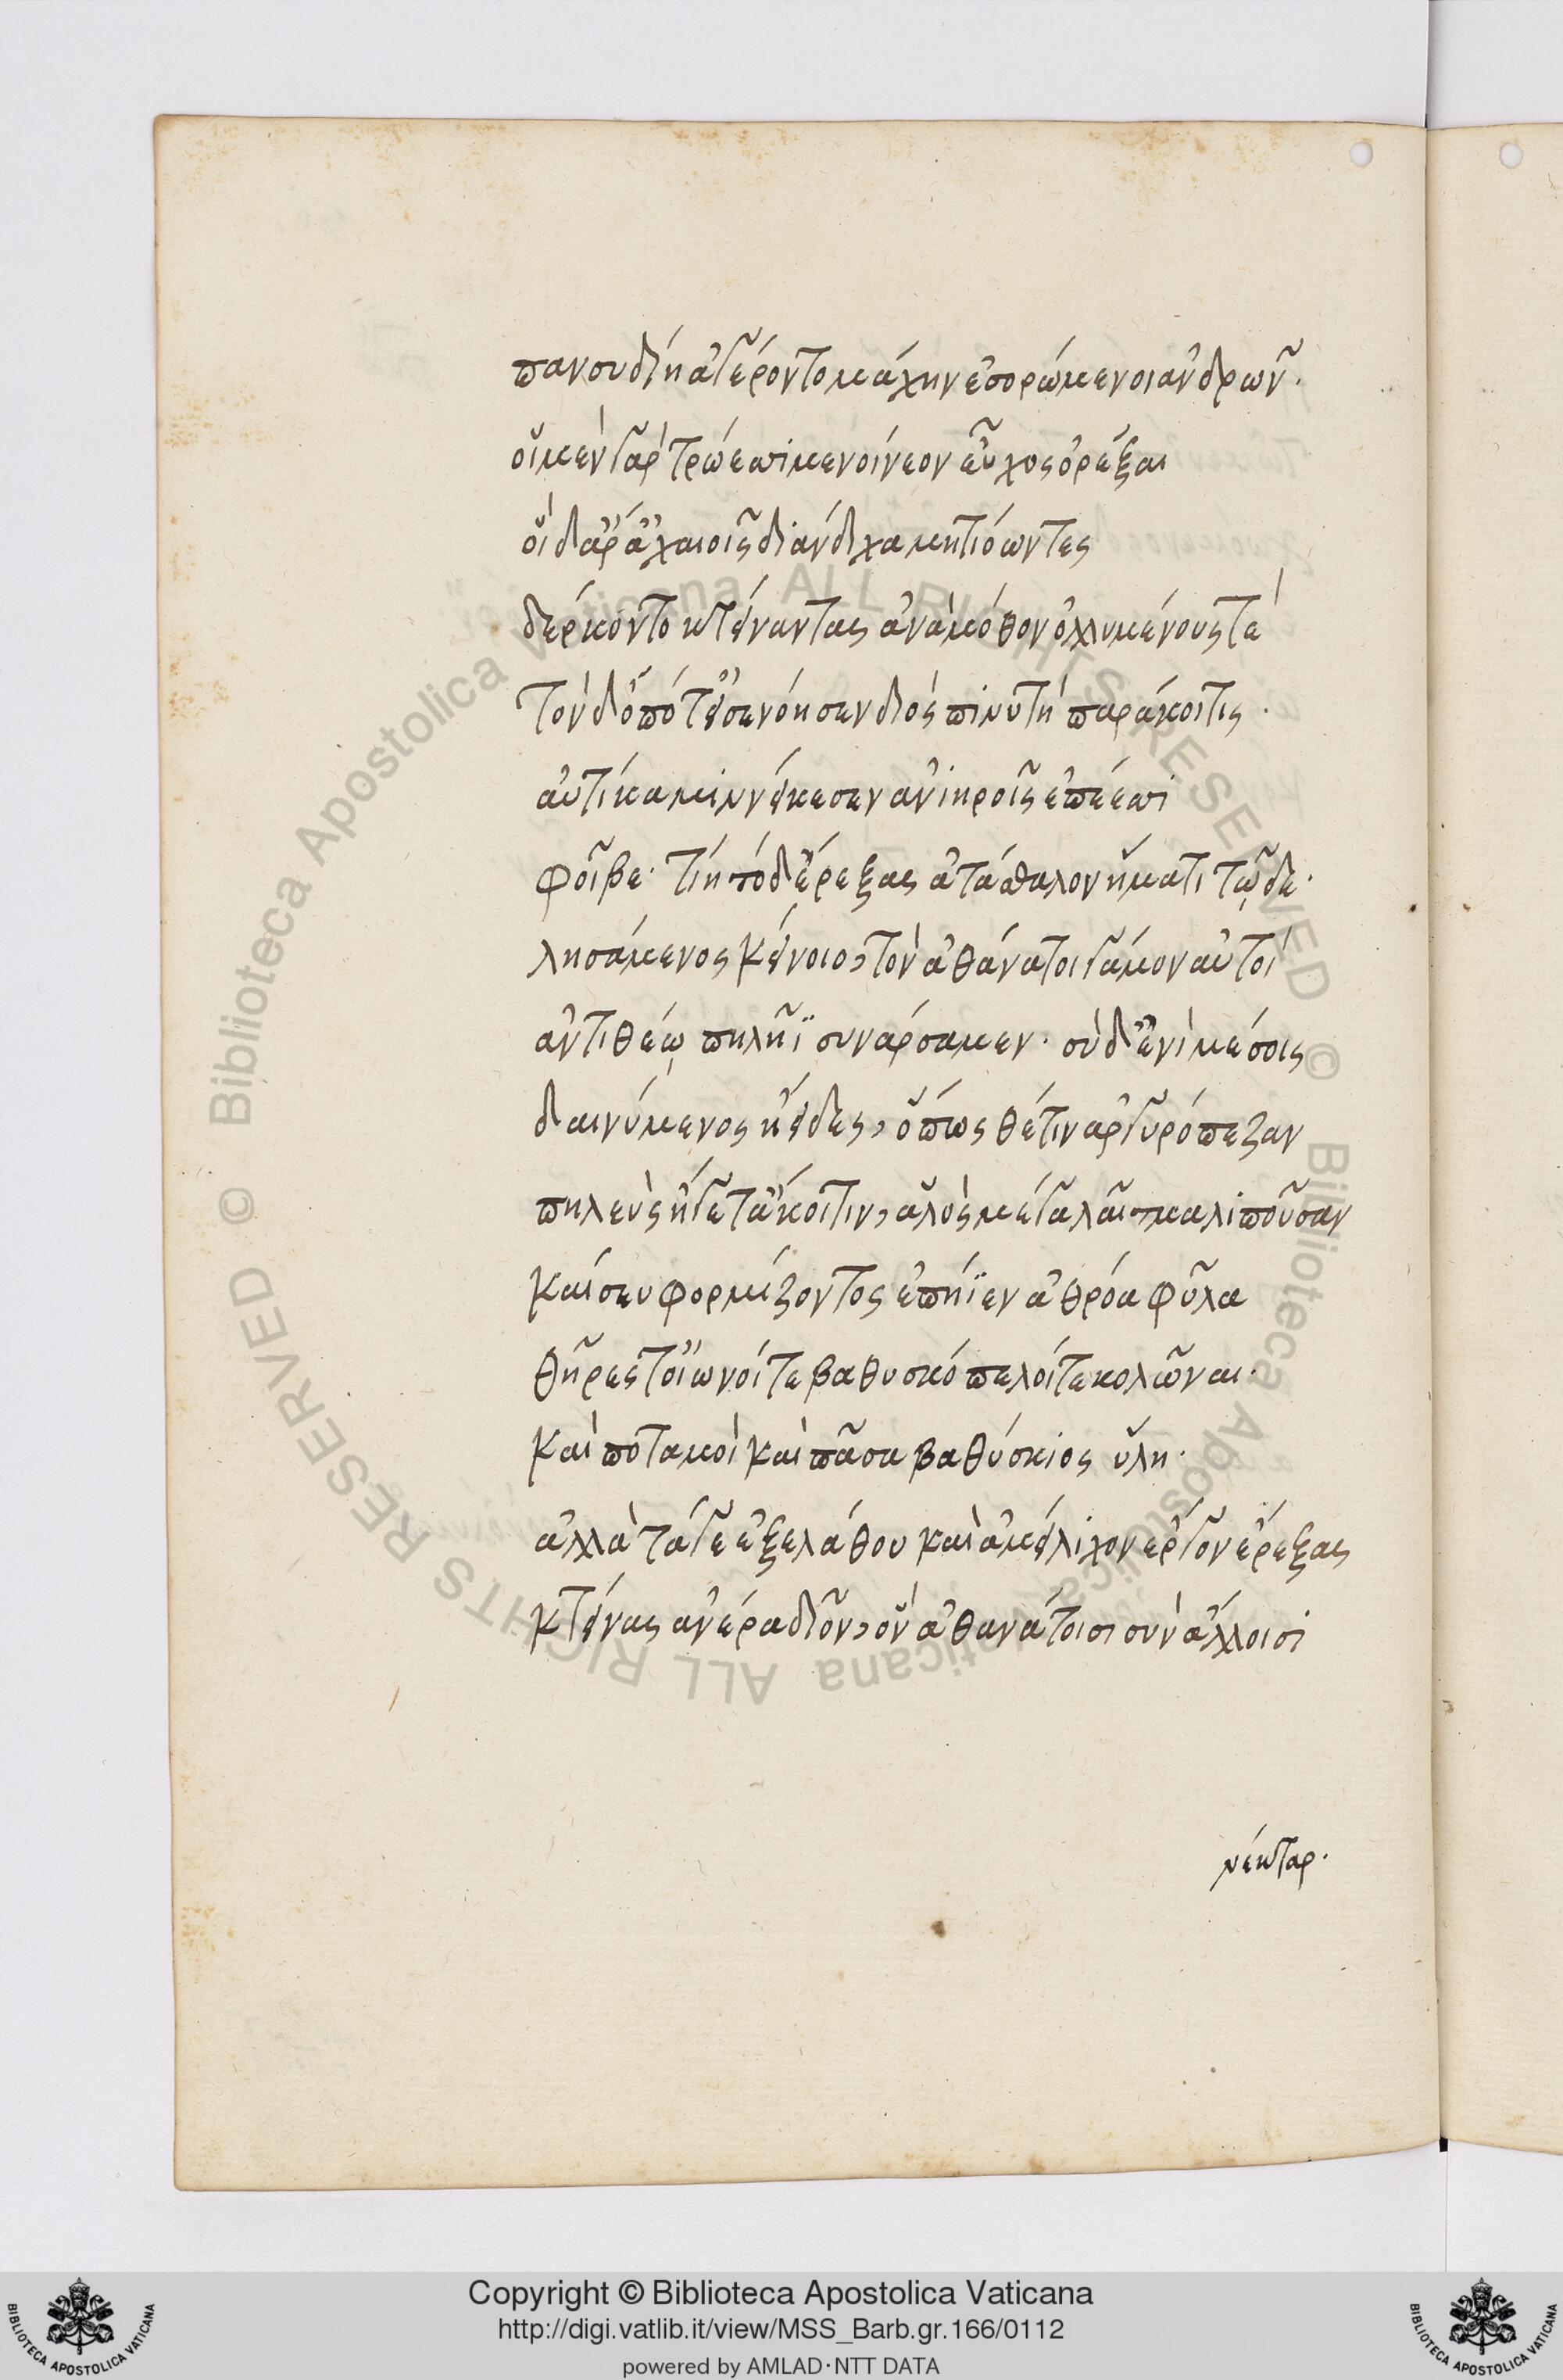 πανσυδίη ἀγέροντο μάχην ἐσορώμενοι ἀνδρῶν.
οἵ μὲν γὰρ τρώεσσι μενοίνεον εὖχος ὀρέξαι
οἵ δ' ἄρ' ἀχαιοῖς διάνδιχα μητιόωντες
δέρκοντο κτείναντας ἀνὰ μόθον ὀλλυμένους τὲ
τὸν δ' ὁπότ' εἰσενόησεν διὸς πινυτὴ παράκοιτις.
αὐτίκα μιν νείκεσεν ἀνιηροῖς ἐπέεσσι
φοῖβε· τίη τόδ' ἔρεξας ἀτάσθαλον ἤματι τῷδε.
λησάμενος κείνοιο, τὸν ἀθάνατοι γάμον αὐτοὶ
ἀντιθέῳ πηλῆϊ συνάρσαμεν· σὺ δ' ἐνὶ μέσσοις
δαινύμενος ἤειδες, ὅπως θέτιν ἀργυρόπεζαν
πηλεὺς ἤγετ' ἄκοιτιν, ἁλὸς μέγα λαῖτμα λιποῦσαν
καί σευ φορμίζοντος ἐπήϊεν ἀθρόα φῦλα
θῆρές τ' οἰωνοί τε βαθυσκόπελοί τε κολῶναι.
καὶ ποταμοὶ καὶ πᾶσα βαθύσκιος ὕλη.
ἀλλὰ τά γε ἐξελάθου καὶ ἀμείλιχον ἔργον ἔρεξας
κτείνας ἀνέρα δῖον, ὃν ἀθανάτοισι σὺν ἄλλοισι
νέκταρ.
Copyright © Biblioteca Apostolica Vaticana
http://digi.vatlib.it/view/MSS_Barb.gr.166/0112
powered by AMLAD·NTT DATA